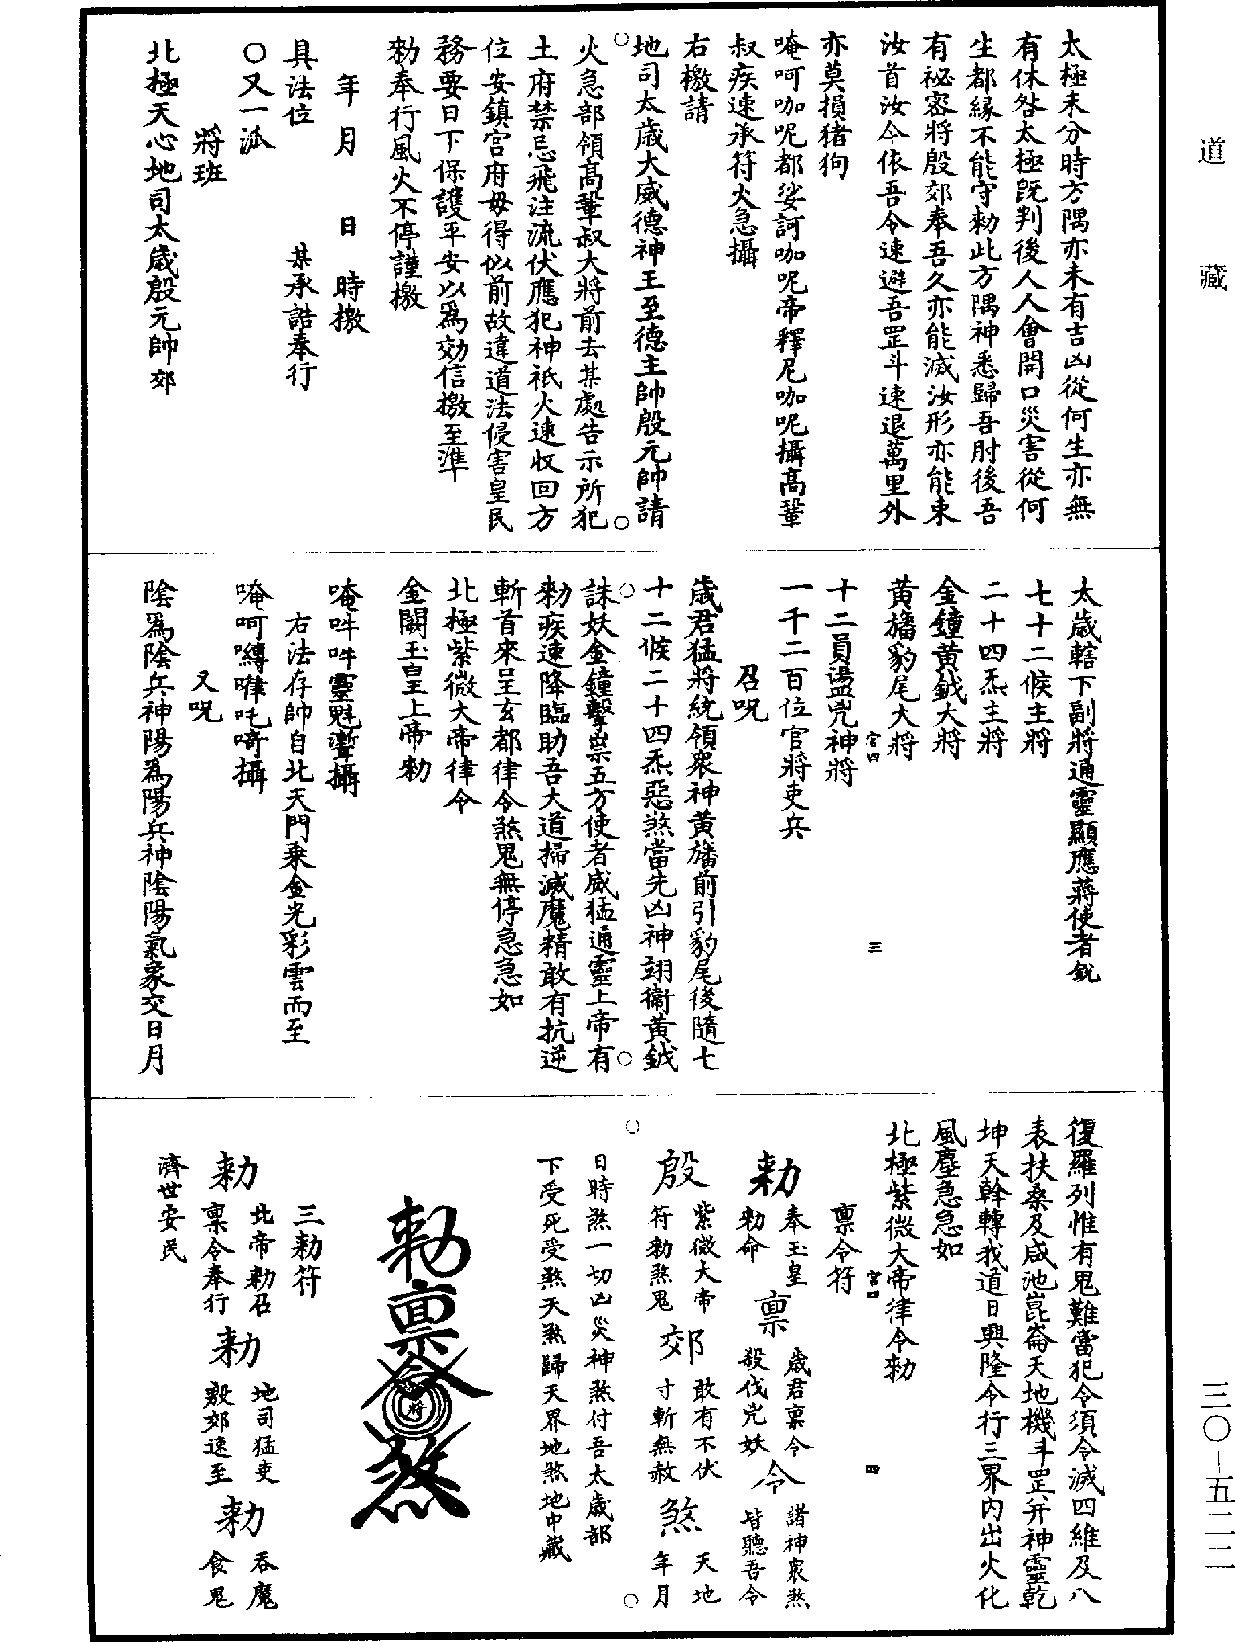 道藏
太極未分時方隅亦未有吉凶從何生亦無
有休咎太極既判後人人會開口災害從何
生都緣不能守勑此方隅神悉歸吾肘後吾
有祕密將殷郊奉吾久亦能滅汝形亦能束
汝首汝今依吾令速避吾罡斗速退萬里外
亦莫損猪狗
唵呵咖呢都娑訶咖呢帝釋尼咖呢攝高鞏
叔疾速承符火急攝
右檄請
地司太歲大威德神王至德主帥殷元帥請
火急部領高鞏叔大將前去某處告示所犯
土府禁忌飛注流伏應犯神祇火速收回方
位安鎮宮府毋得似前故違道法侵害皇民
務要日下保護平安以爲効信檄至準
勑奉行風火不停謹檄
年月 日 時檄
具法位 某承誥奉行
○又一派
將班
北極天心地司太歲殷元帥郊
太歲轄下副將通靈顯應蔣使者銳
七十二候主將
二十四炁主將
金鐘黃鉞大將
黃旛豹尾大將
宮四 三
十二員盪兇神將
一千二百位官將吏兵
召呪
歲君猛將統領衆神黃旛前引豹尾後隨七
十二候二十四炁惡煞當先凶神翊衛黃鉞
誅妖金鐘擊祟五方使者威猛通靈上帝有
勑疾速降臨助吾大道掃滅魔精敢有抗逆
斬首來呈玄都律令煞鬼無停急急如
北極紫微大帝律令
金闕玉皇上帝勑
唵吽吽靈魁攝
右法存帥自北天門乘金光彩雲而至
唵呵吒攝
又呪
陰爲陰兵神陽爲陽兵神陰陽氣象交日月
復羅列惟有鬼難當犯令須令滅四維及八
表扶桑及咸池崑崙天地機斗罡并神靈乾
坤天幹轉我道日興隆令行三界內出火化
風塵急急如
北極紫微大帝律令勑
宮四 四
禀令符
勑 奉玉皇勑命 禀 歲君禀令殺伐兇妖 令 諸神衆煞皆聽吾令
殷 紫微大帝符勑煞鬼 郊 敢有不伏寸斬無赦 煞 天地年月
日時煞一切凶災神煞付吾太歲部
下受死受煞天煞歸天界地煞地中藏
勑禀令府煞
三勑符
勑 北帝勑召禀令奉行 勑 地司猛吏殷郊速至 勑 吞魔食鬼
濟世安民
三〇－五二二